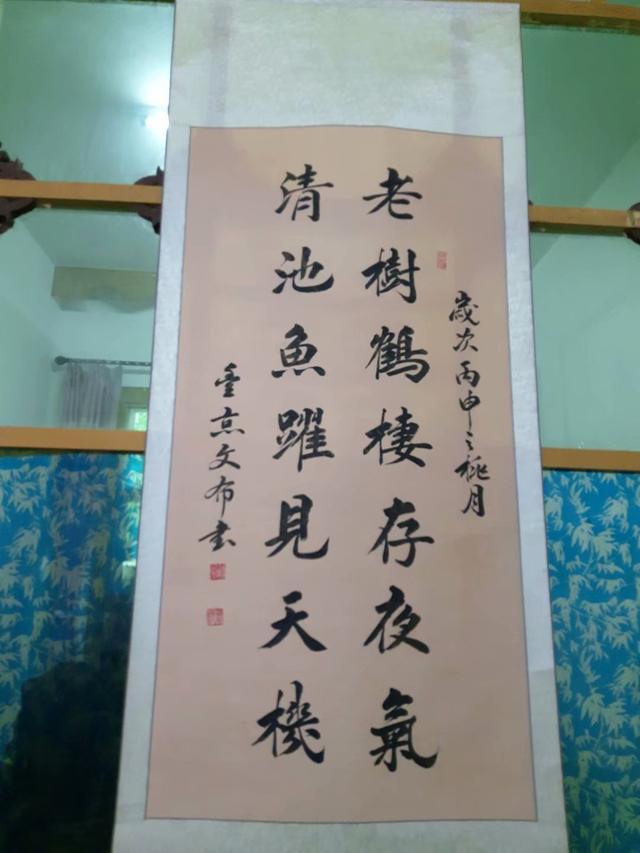 歲次丙申之桃月
老樹鶴棲存夜氣
清池魚躍見天機
文布書